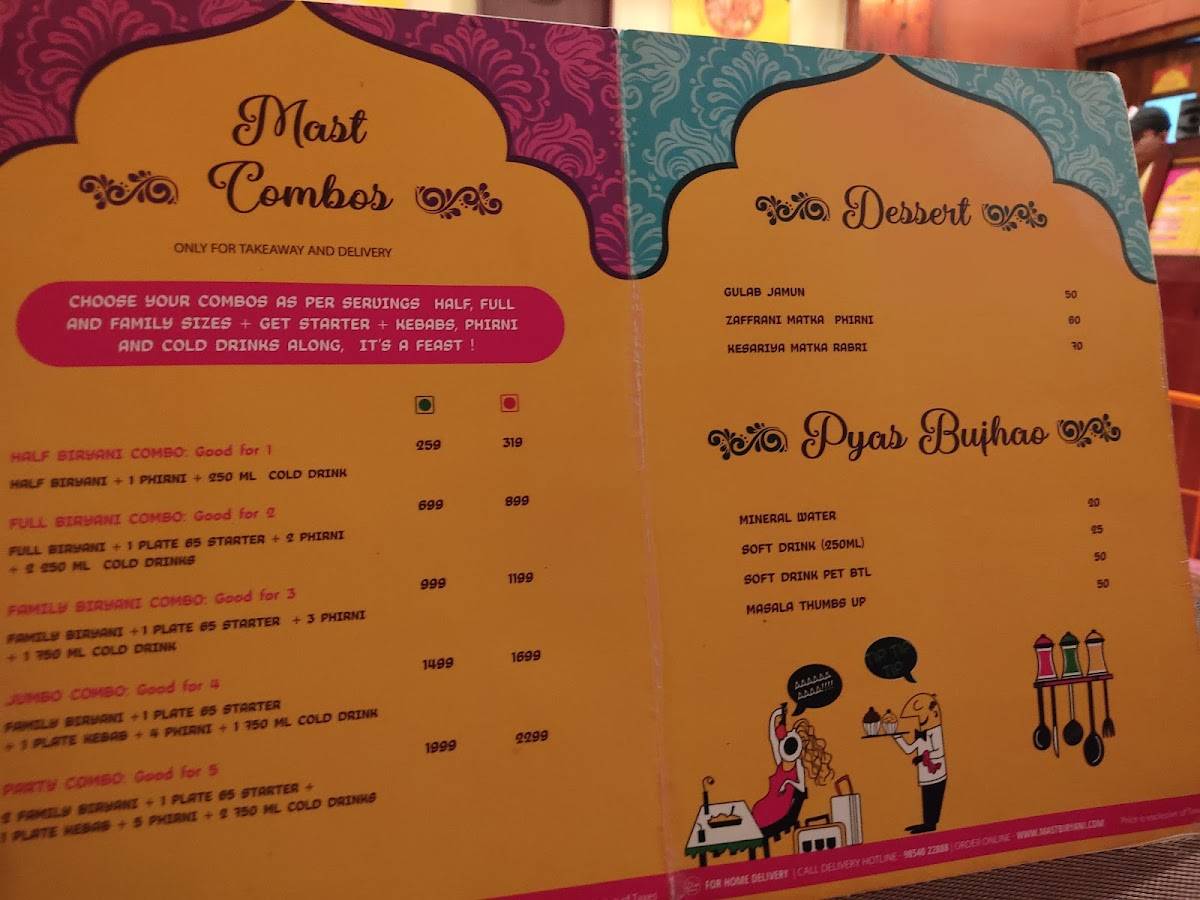 Mast
Combos
ONLY FOR TAKEAWAY AND DELIVERY
CHOOSE YOUR COMBOS AS PER SERVINGS HALF, FULL
AND FAMILY SIZES + GET STARTER + KEBABS, PHIRNI
AND COLD DRINKS ALONG, IT'S A FEAST !
HALF BIRYANI COMBO: Good for 1 259 319
HALF BIRYANI + 1 PHIRNI + 250 ML COLD DRINK
FULL BIRYANI COMBO: Good for 2 699 899
FULL BIRYANI + 1 PLATE 65 STARTER + 2 PHIRNI
+ 2 250 ML COLD DRINKS
FAMILY BIRYANI COMBO: Good for 3 999 1199
FAMILY BIRYANI +1 PLATE 65 STARTER + 3 PHIRNI
+ 1 750 ML COLD DRINK
JUMBO COMBO: Good for 4 1499 1699
FAMILY BIRYANI +1 PLATE 65 STARTER
+ 1 PLATE KEBAB + 4 PHIRNI + 1 750 ML COLD DRINK
PARTY COMBO: Good for 5 1999 2299
2 FAMILY BIRYANI + 1 PLATE 65 STARTER +
1 PLATE KEBAB + 5 PHIRNI + 2 750 ML COLD DRINKS
of Taxes
Dessert
GULAB JAMUN 50
ZAFFRANI MATKA PHIRNI 60
KESARIYA MATKA RABRI 70
Pyas Bujhao
MINERAL WATER 20
SOFT DRINK (250ML) 25
SOFT DRINK PET BTL 50
MASALA THUMBS UP 50
AAAAAA
AAAA!!!!
FOR HOME DELIVERY | CALL DELIVERY HOTLINE - 98540 22888 | ORDER ONLINE - WWW.MASTBIRYANI.COM
Price is exclusive of